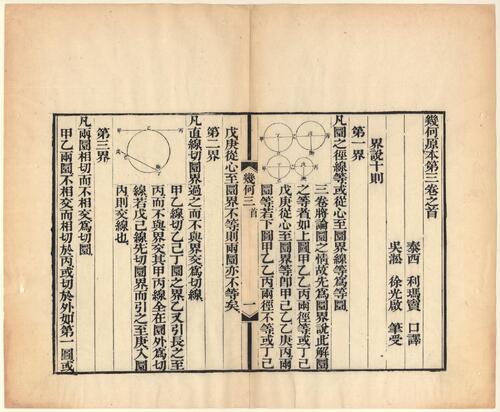 幾何原本第三卷之首
泰西 利瑪竇 口譯
吳淞 徐光啟 筆受
界說十則
第一界
凡圜之徑線等或從心至圜界線等為等圜
三卷將論圜之情故先為圜界說此解圜
之等者如上圖甲乙乙丙兩徑等或丁己
戊庚從心至圜界等即甲己乙乙庚丙兩
圜等若下圖甲乙乙丙兩徑不等或丁己
戊庚從心至圜界不等則兩圜亦不等矣
幾何三 首 一
第二界
凡直線切圜界過之而不與界交為切線
甲乙線切乙己丁圜之界乙又引長之至
丙而不與界交其甲丙線全在圜外為切
線若戊己線先切圜界而引之至庚入圜
內則交線也
第三界
凡兩圜相切而不相交為切圜
甲乙兩圜不相交而相切於丙或切於外如第一圖或